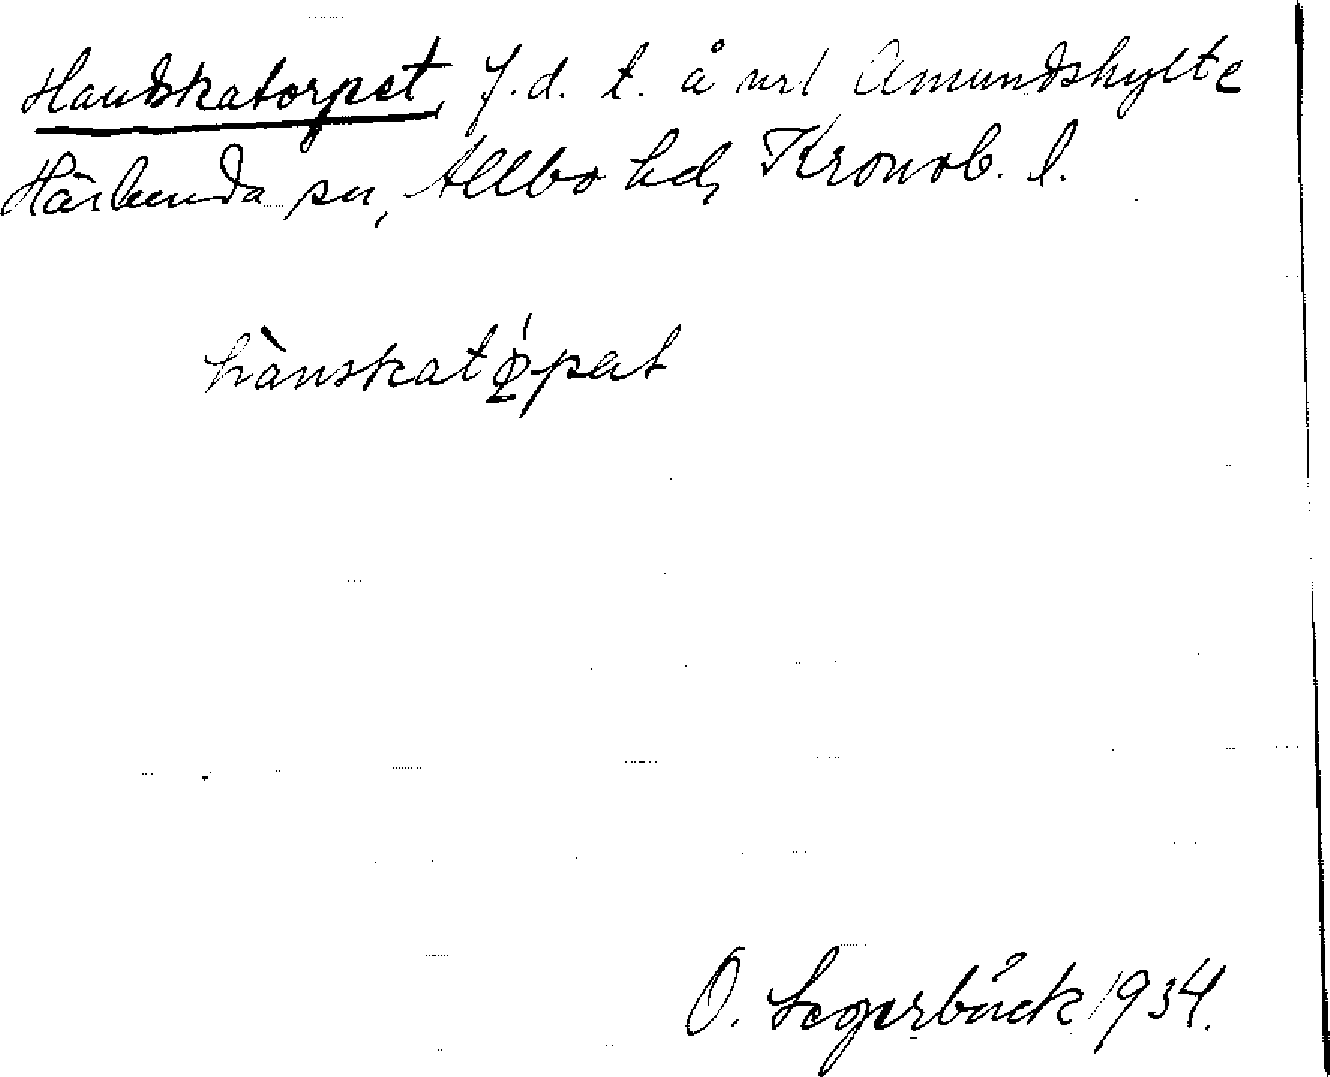 Handskatorpet, f.d. t. å nr 1 Amundshylte
Härlunda sn, Allbo hd, Kronob. l.
hànskatǿpet
O. Segerbäck 1934.